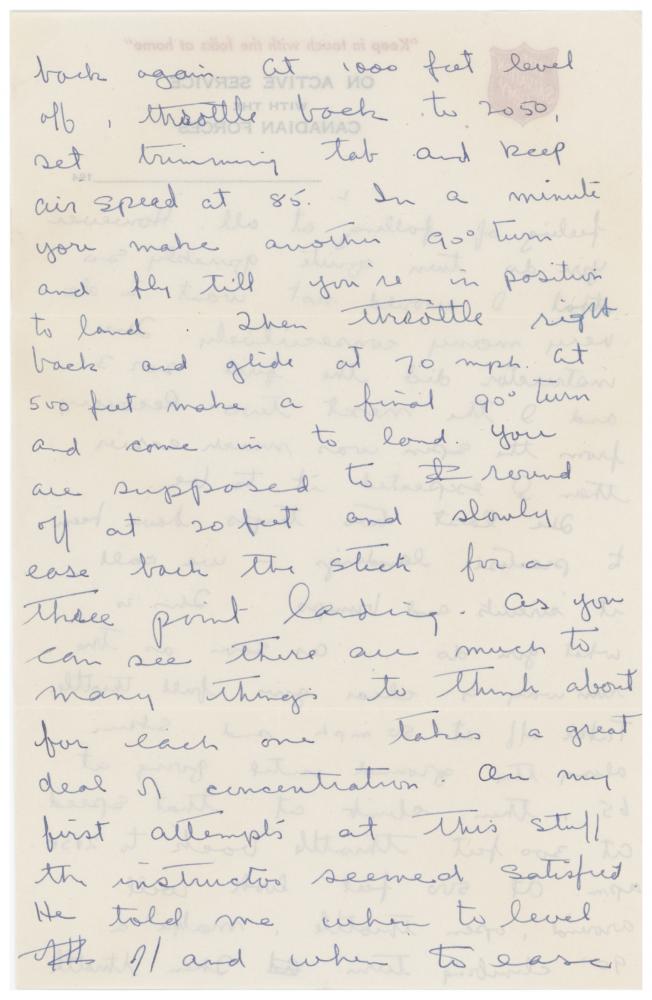 back again. At 1000 feet level
off, throttle back to 2050,
set trimming tab and keep
air speed at 85. In a minute
you make another 90° turn
and fly till you're in position
to land. Then throttle right
back and glide at 70 mph. At
500 feet make a final 90° turn
and come in to land. You
are supposed to round
off at 20 feet and slowly
ease back the stick for a
three point landing. As you
can see there are much to
many things to think about
for each one takes a great
deal of concentration. On my
first attempts at this stuff
the instructor seemed satisfied.
He told me when to level
off and when to ease